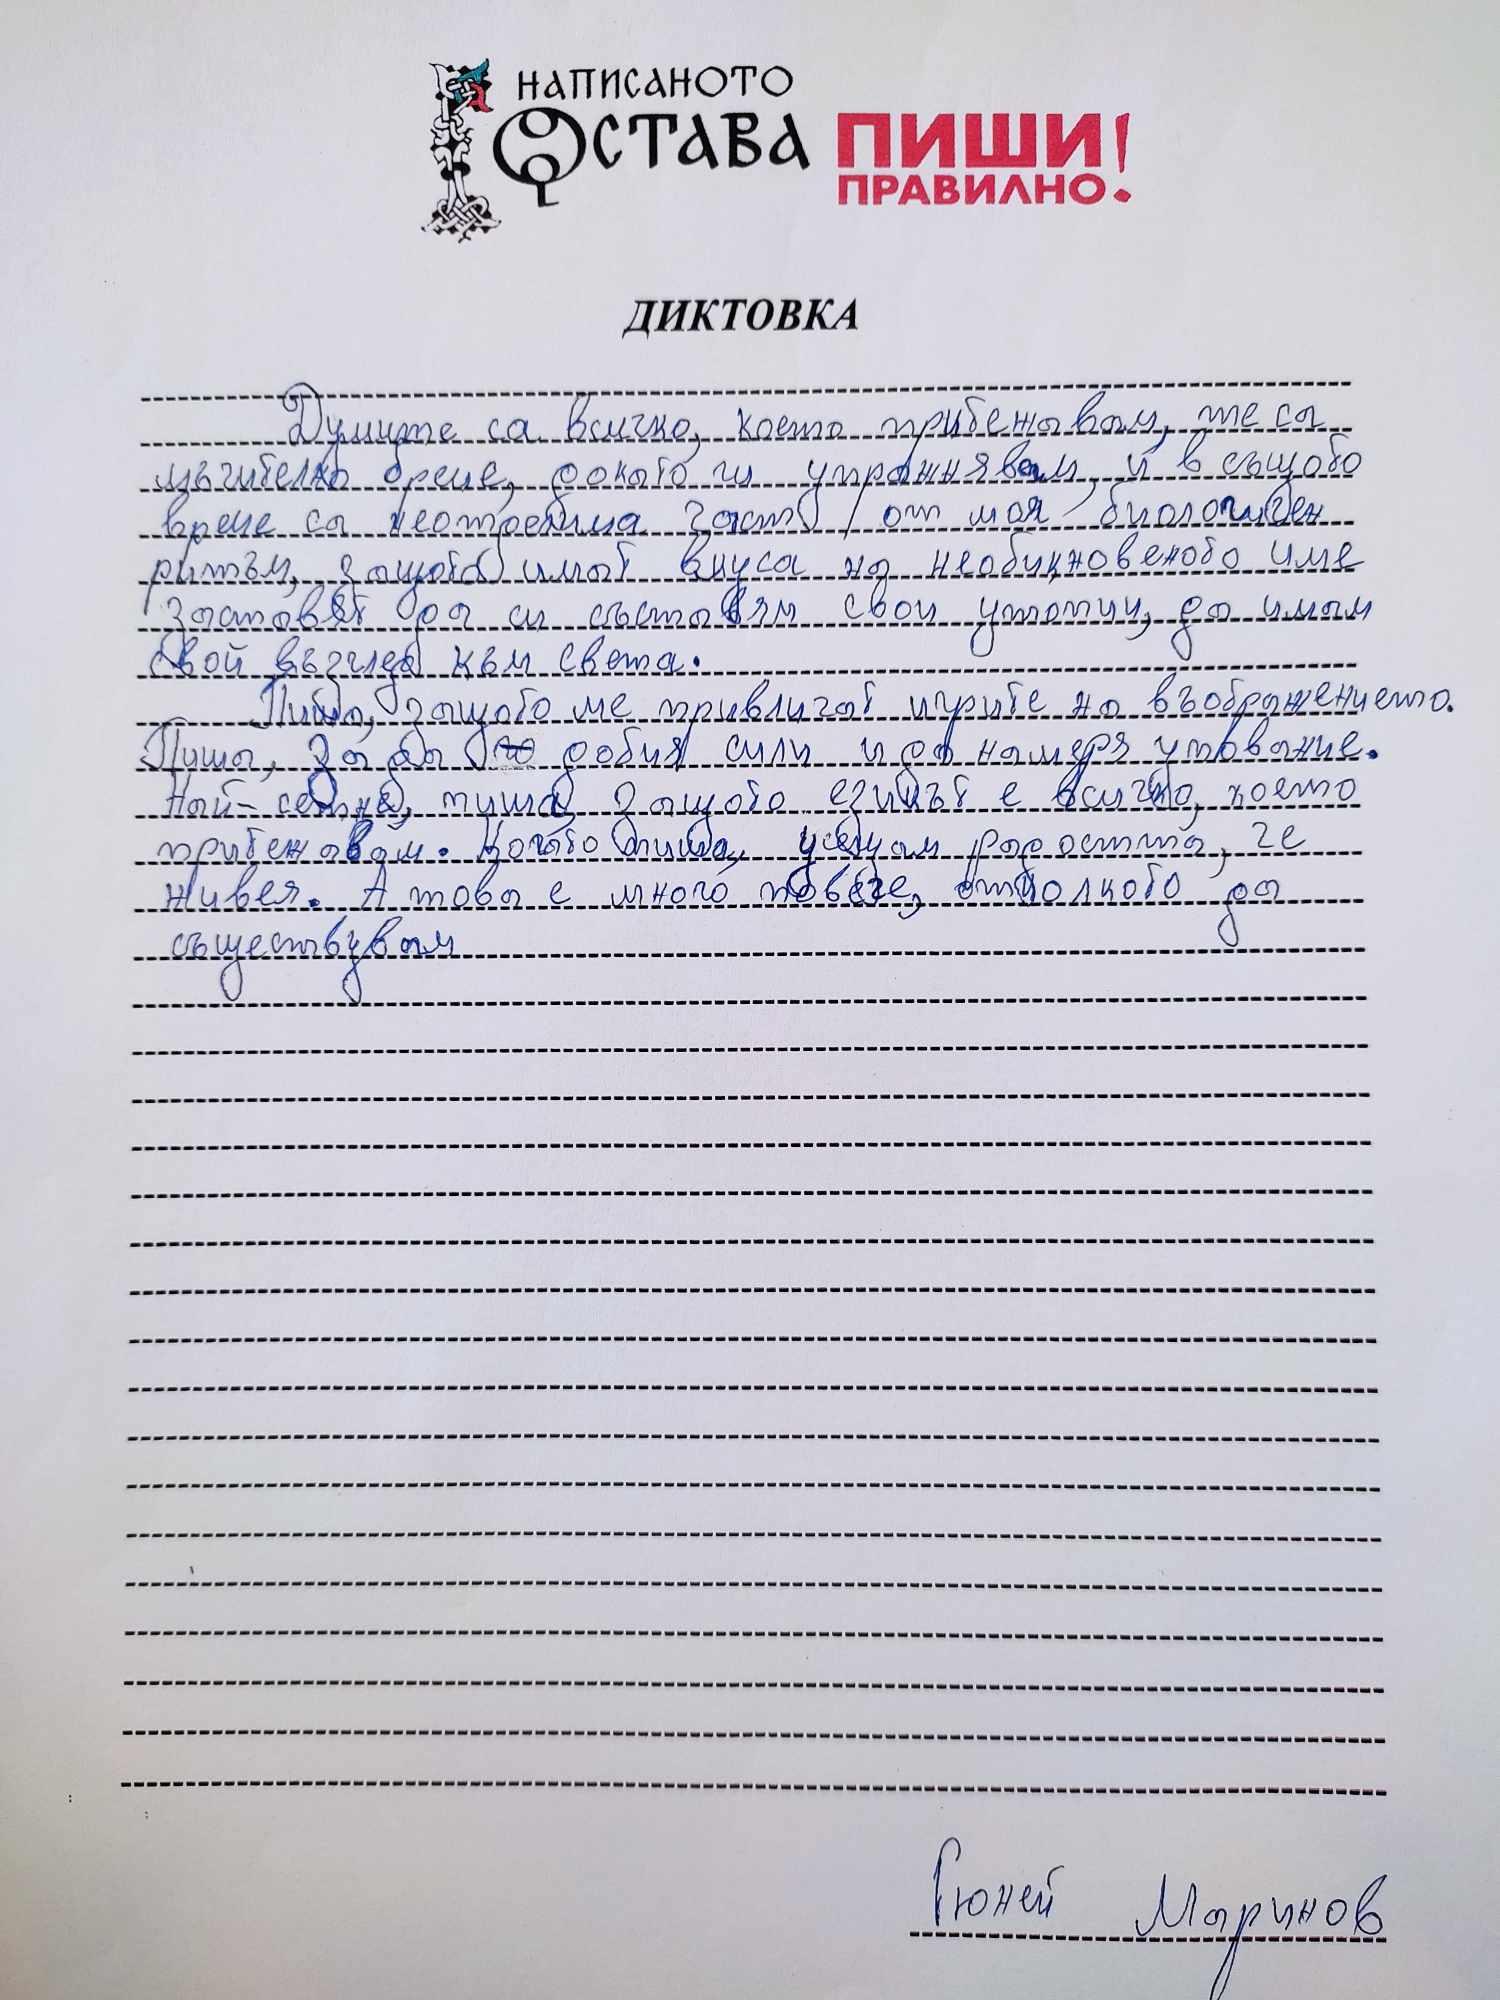 НАПИСАНОТО
ОСТАВА
ПИШИ!
ПРАВИЛНО!
ДИКТОВКА
Думите са всичко, което притежавам, те са
мъчително бреме, докато ги упражнявам, и в същото
време са неотменима част от моя биологичен
ритъм, защото имат вкуса на необикновеното име
заставят да си съставям свои утопии, да имам
свой възглед към света.
Пиша, защото ме привличат игрите на въображението.
Пиша, за да добия сили и да намеря упование.
Най-сетне, пиша, защото езикът е всичко, което
притежавам. Когато пиша, усещам радостта, че
живея. А това е много повече, отколкото да
съществувам
Гюней Маринов